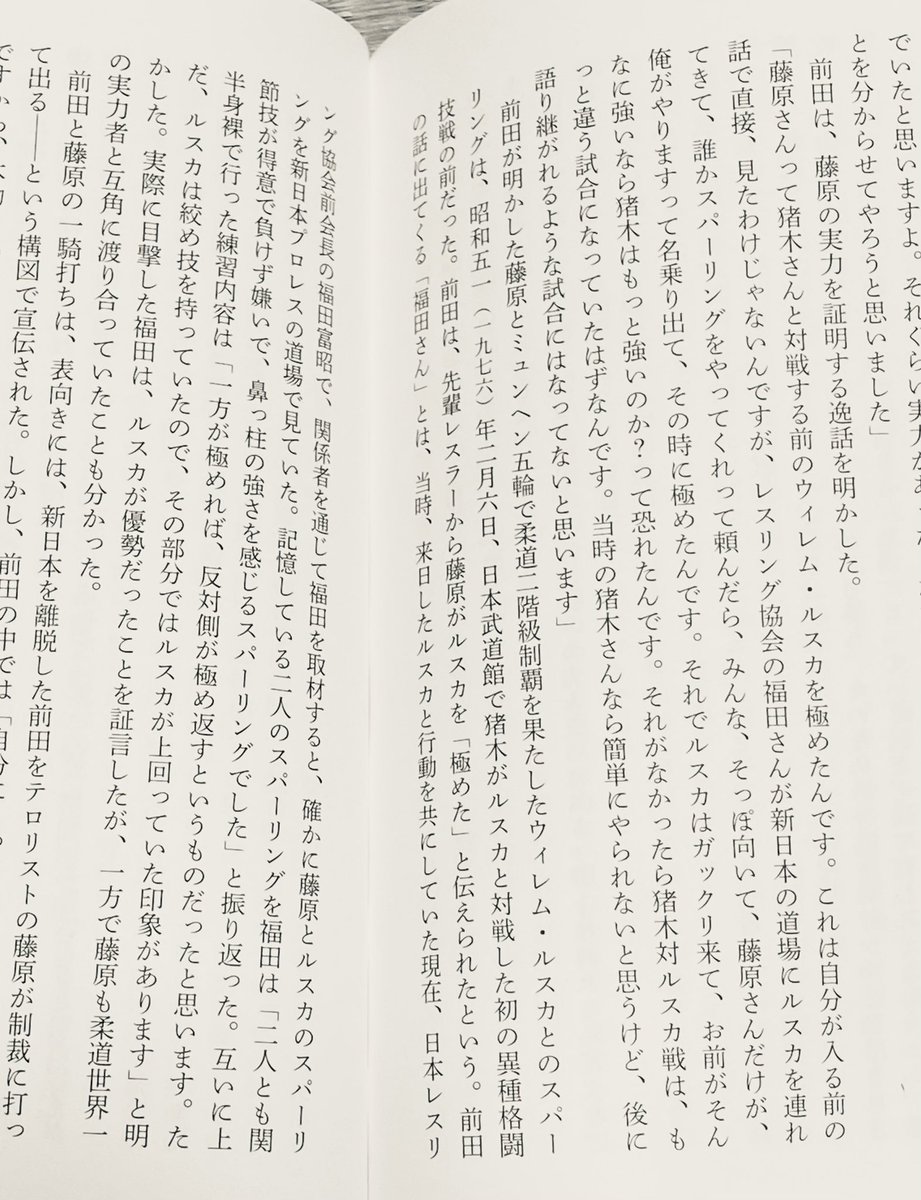 でいたと思いますよ。それくらい実力があ
とを分からせてやろうと思いました」
前田は、藤原の実力を証明する逸話を明かした。
「藤原さんって猪木さんと対戦する前のウィレム・ルスカを極めたんです。これは自分が入る前の
話で直接、見たわけじゃないんですが、レスリング協会の福田さんが新日本の道場にルスカを連れ
てきて、誰かスパーリングをやってくれって頼んだら、みんな、そっぽ向いて、藤原さんだけが、
俺がやりますって名乗り出て、その時に極めたんです。それでルスカはガックリ来て、お前がそん
なに強いなら猪木はもっと強いのか?って恐れたんです。それがなかったら猪木対ルスカ戦は、も
っと違う試合になっていたはずなんです。当時の猪木さんなら簡単にやられないと思うけど、後に
語り継がれるような試合にはなってないと思います」
前田が明かした藤原とミュンヘン五輪で柔道二階級制覇を果たしたウィレム・ルスカとのスパー
リングは、昭和五一(一九七六)年二月六日、日本武道館で猪木がルスカと対戦した初の異種格闘
技戦の前だった。前田は、先輩レスラーから藤原がルスカを「極めた」と伝えられたという。前田
の話に出てくる「福田さん」とは、当時、来日したルスカと行動を共にしていた現在、日本レスリ
ング協会前会長の福田富昭で、関係者を通じて福田を取材すると、確かに藤原とルスカのスパーリ
ングを新日本プロレスの道場で見ていた。記憶している二人のスパーリングを福田は「二人とも関
節技が得意で負けず嫌いで、鼻っ柱の強さを感じるスパーリングでした」と振り返った。互いに上
半身裸で行った練習内容は「一方が極めれば、反対側が極め返すというものだったと思います。た
だ、ルスカは絞め技を持っていたので、その部分ではルスカが上回っていた印象があります」と明
かした。実際に目撃した福田は、ルスカが優勢だったことを証言したが、一方で藤原も柔道世界一
の実力者と互角に渡り合っていたことも分かった。
前田と藤原の一騎打ちは、表向きには、新日本を離脱した前田をテロリストの藤原が制裁に打っ
て出る――という構図で宣伝された。しかし、前田の中では「自分に
ですから、